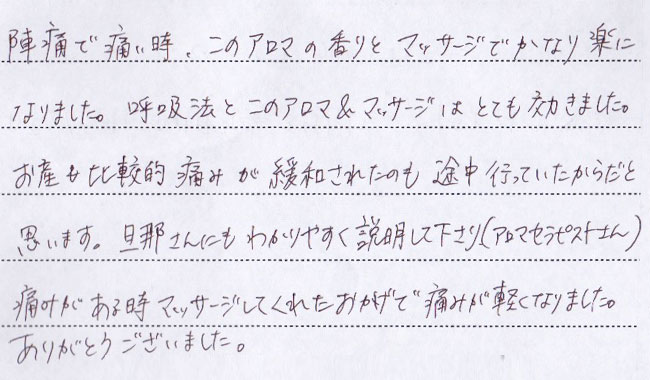 陣痛で痛い時、このアロマの香りと マッサージでかなり楽に
なりました。呼吸法とこのアロマ&マッサージはとても効きました。
お産も比較的痛みが緩和されたのも途中行っていたからだと
思います。旦那さんにもわかりやすく説明して下さり(アロマセラピストさん)
痛みがある時マッサージしてくれたおかげで痛みが軽くなりました。
ありがとうございました。